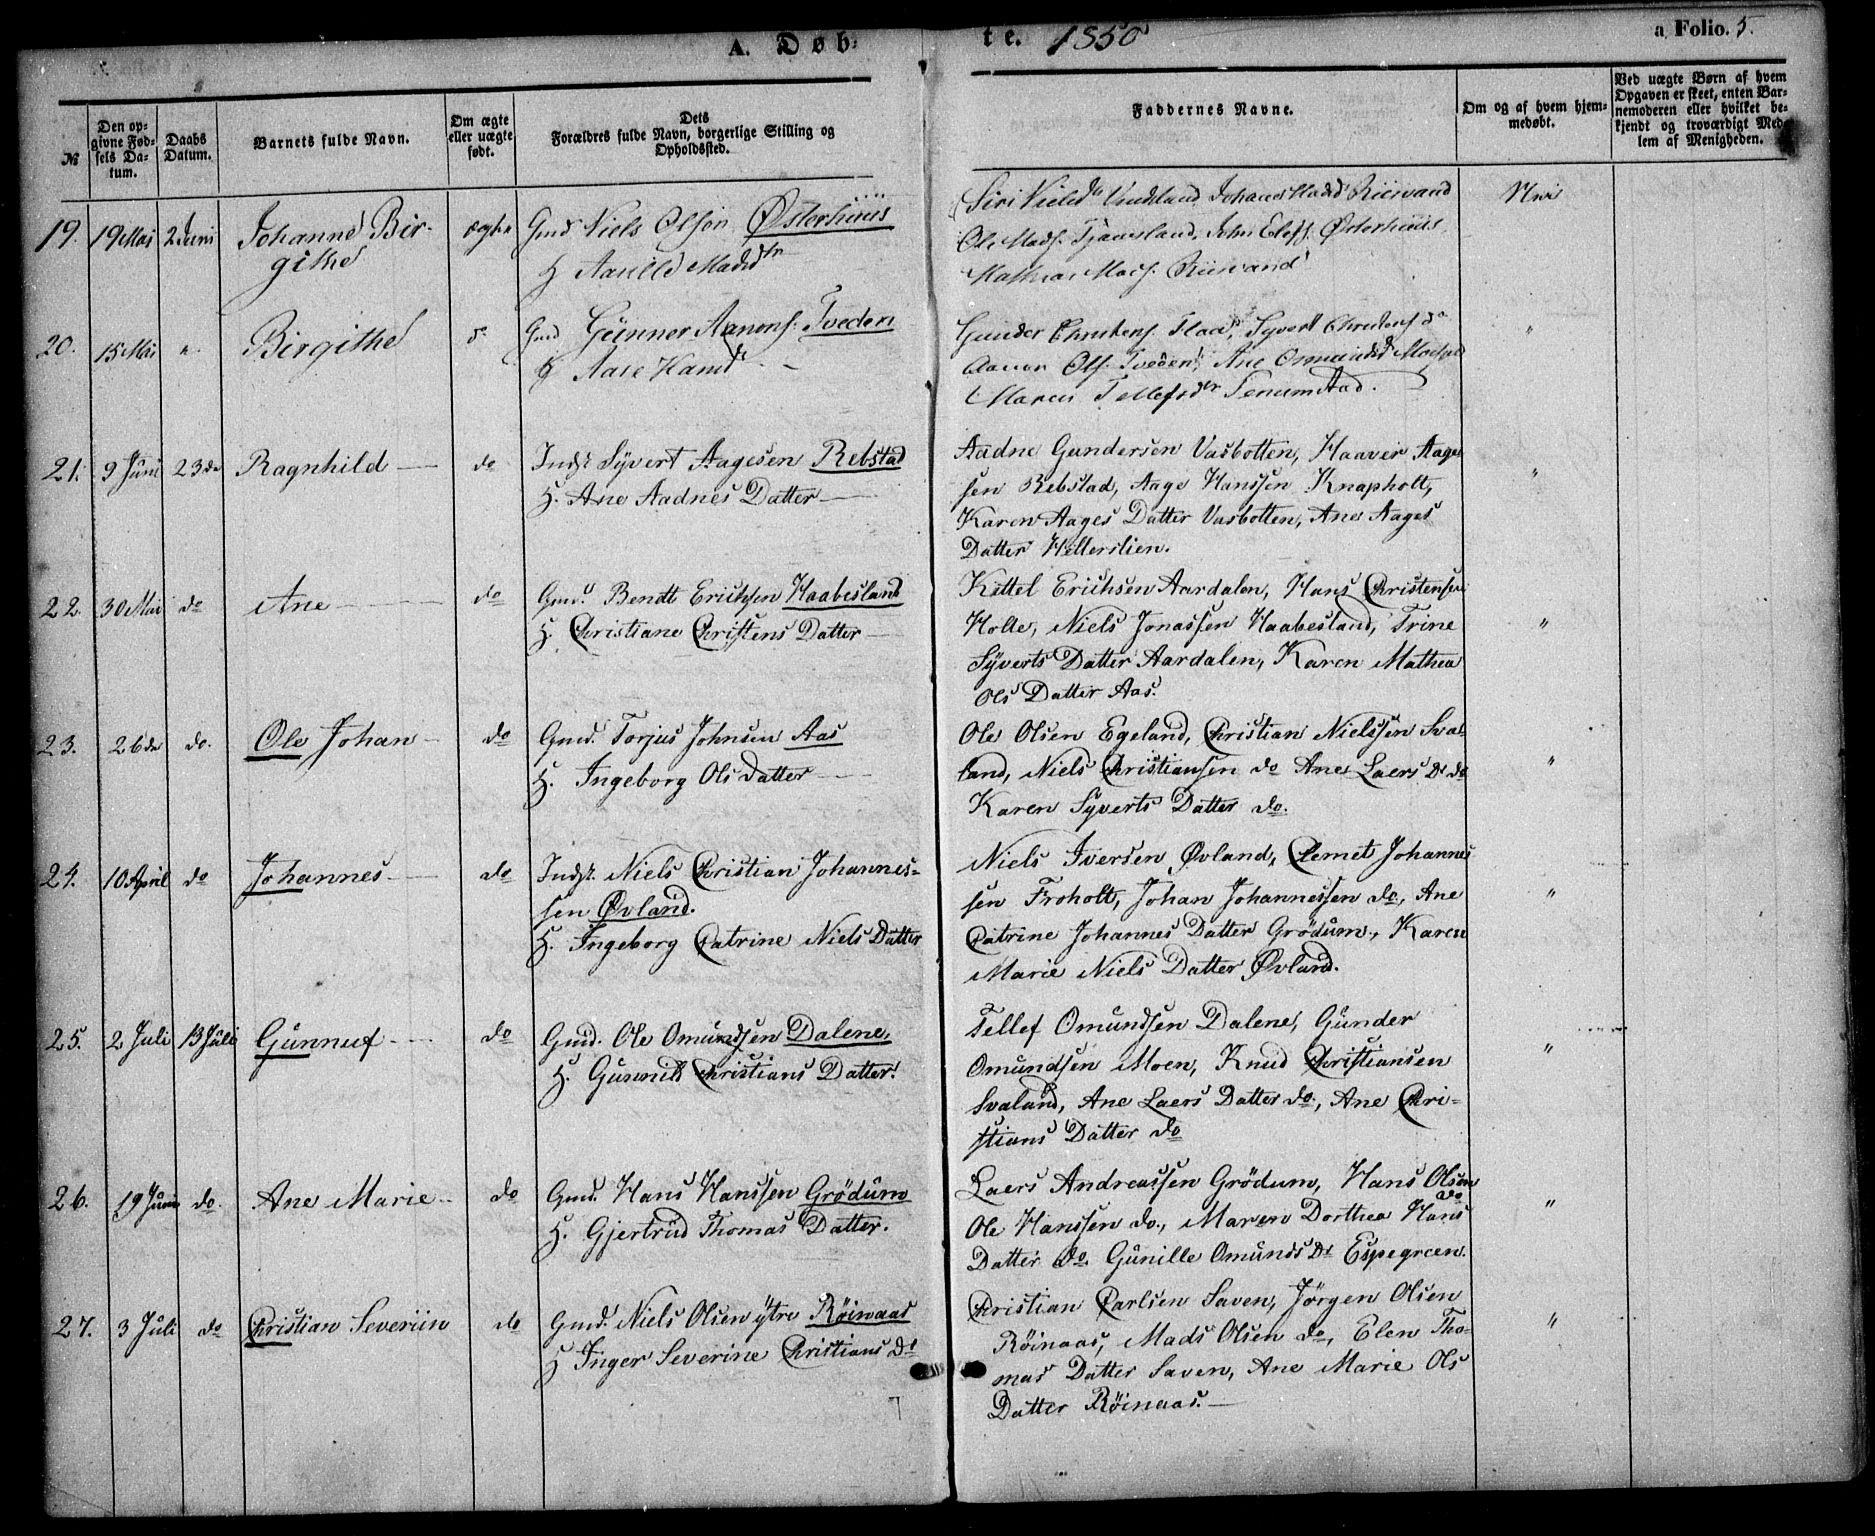 A. Døb- te. 1850 a Folio. 5.
№
Den opgivne Fødsels Datum.
Daabs Datum.
Barnets fulde Navn.
Om ægte eller uægte født.
Dets Forældres fulde Navn, borgerlige Stilling og Opholdssted.
Faddernes Navne.
Om og af hvem hjemmedøbt.
Ved uægte Børn af hvem Opgaven er skeet, enten Barnemoderen eller hvilket bekjendt og troværdigt Medlem af Menigheden.
19. 19 Mai 2 Juni Johanne Bir-
githe
ægte Gmd Niels Olson Østerhuus
H Aasille Madsdtr
Siri Nielsdtr
Ole Mads. Tjamsland, John Elefs. Østerhuus,
Mathias Mads. Riisvand
Nei
20. 15 Mai " Birgithe do Gmd Gunner Aanons: Tveden
H Aase Hansd
Gunder Christens. Flaa, Syvert Christens. do
Aanon Ols. Tveden, Ane Osmundsd
Maren Tellefsdtr Senumstad.
"
21. 9 Juni 23 de Ragnhild do Indst Syvert Aagesen Rebstad
H. Ane Aadnes Datter
Aadne Gundersen Vasbotten, Haaver Aage
sen Rebstad, Aage Hanssen Knapholt,
Karen Aages Datter Vasbotten, Ane Aages
Datter Hellerslien.
"
22. 30 Mai do Ane do Gmd. Bendt Erichsen Haabesland
H. Christiane Christens Datter
Kittel Erichsen Aardalen, Hans Christensen
Holte, Niels Jonassen Haabesland, Trine
Syverts Datter Aardalen, Karen Mathea
Ols Datter Aas.
"
23. 26 de do. Ole Johan do Gmd. Torjus Johnsen Aas
H. Ingeborg Ols Datter
Ole Olsen Egeland, Christian Nielssen Sva
land, Niels Christiansen do Ane Laers Dr do
Karen Syverts Datter do.
"
24. 10 April do Johannes do Indst. Niels Christian Johannes-
sen Øvland.
H. Ingeborg Catrine Niels Datter
Niels Iversen Øvland, Clemet Johannes
sen Froholt, Johan Johannessen do, Ane
Catrine Johannes Datter Grödum, Karen
Marie Niels Datter Øvland.
"
25. 2 Juli 13 Juli Gunnuf do Gmd. Ole Omundsen Dalene,
H. Gunnild Christians Datter.
Tellef Omundsen Dalene, Gunder
Omundsen Moen, Knud Christiansen
Svaland, Ane Laers Datter do, Ane Chri-
stians Datter do
"
26. 19 Juni do. Ane Marie do Gmd. Hans Hanssen Grödum
H. Gjertrud Thomas Datter.
Laers Andreassen Grödum, Hans Olsen do
Ole Hanssen do., Maren Dorthea Hans
Datter do. Gunille Omunds Dr Espegreen.
"
27. 3 Juli do Christian Severiin do Gmd. Niels Olsen ytre Röinaas
H Inger Severine Christians Dr
Christian Carlsen Saven, Jörgen Olsen
Röinaas, Mads Olsen do, Elen Tho-
mas Datter Saven, Ane Marie Ols
Datter Röinaas.
"